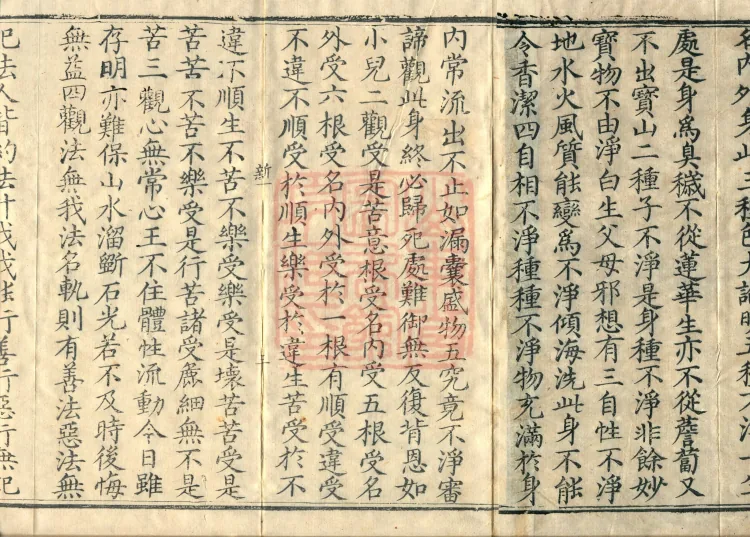 名內外身此三種色大論明五種不淨一生
處是身爲臭穢不從蓮華生亦不從薝蔔又
不出寶山二種子不淨是身種不淨非餘妙
寶物不由淨白生父母邪想有三自性不淨
地水火風質能變爲不淨傾海洗此身不能
令香潔四自相不淨種種不淨物充滿於身
內常流出不止如漏囊盛物五究竟不淨審
諦觀此身終必歸死處難御無反復背恩如
小兒二觀受是苦意根受名內受五根受名
外受六根受名內外受於一根有順受違受
不違不順受於順生樂受於違生苦受於不
新一 三
違不順生不苦不樂受樂受是壞苦苦受是
苦苦不苦不樂受是行苦諸受麄細無不是
苦三觀心無常心王不住體性流動今日雖
存明亦難保山水溜斷石光若不及時後悔
無益四觀法無我法名軌則有善法惡法無
記法人皆約法計我我能行善行惡行無記